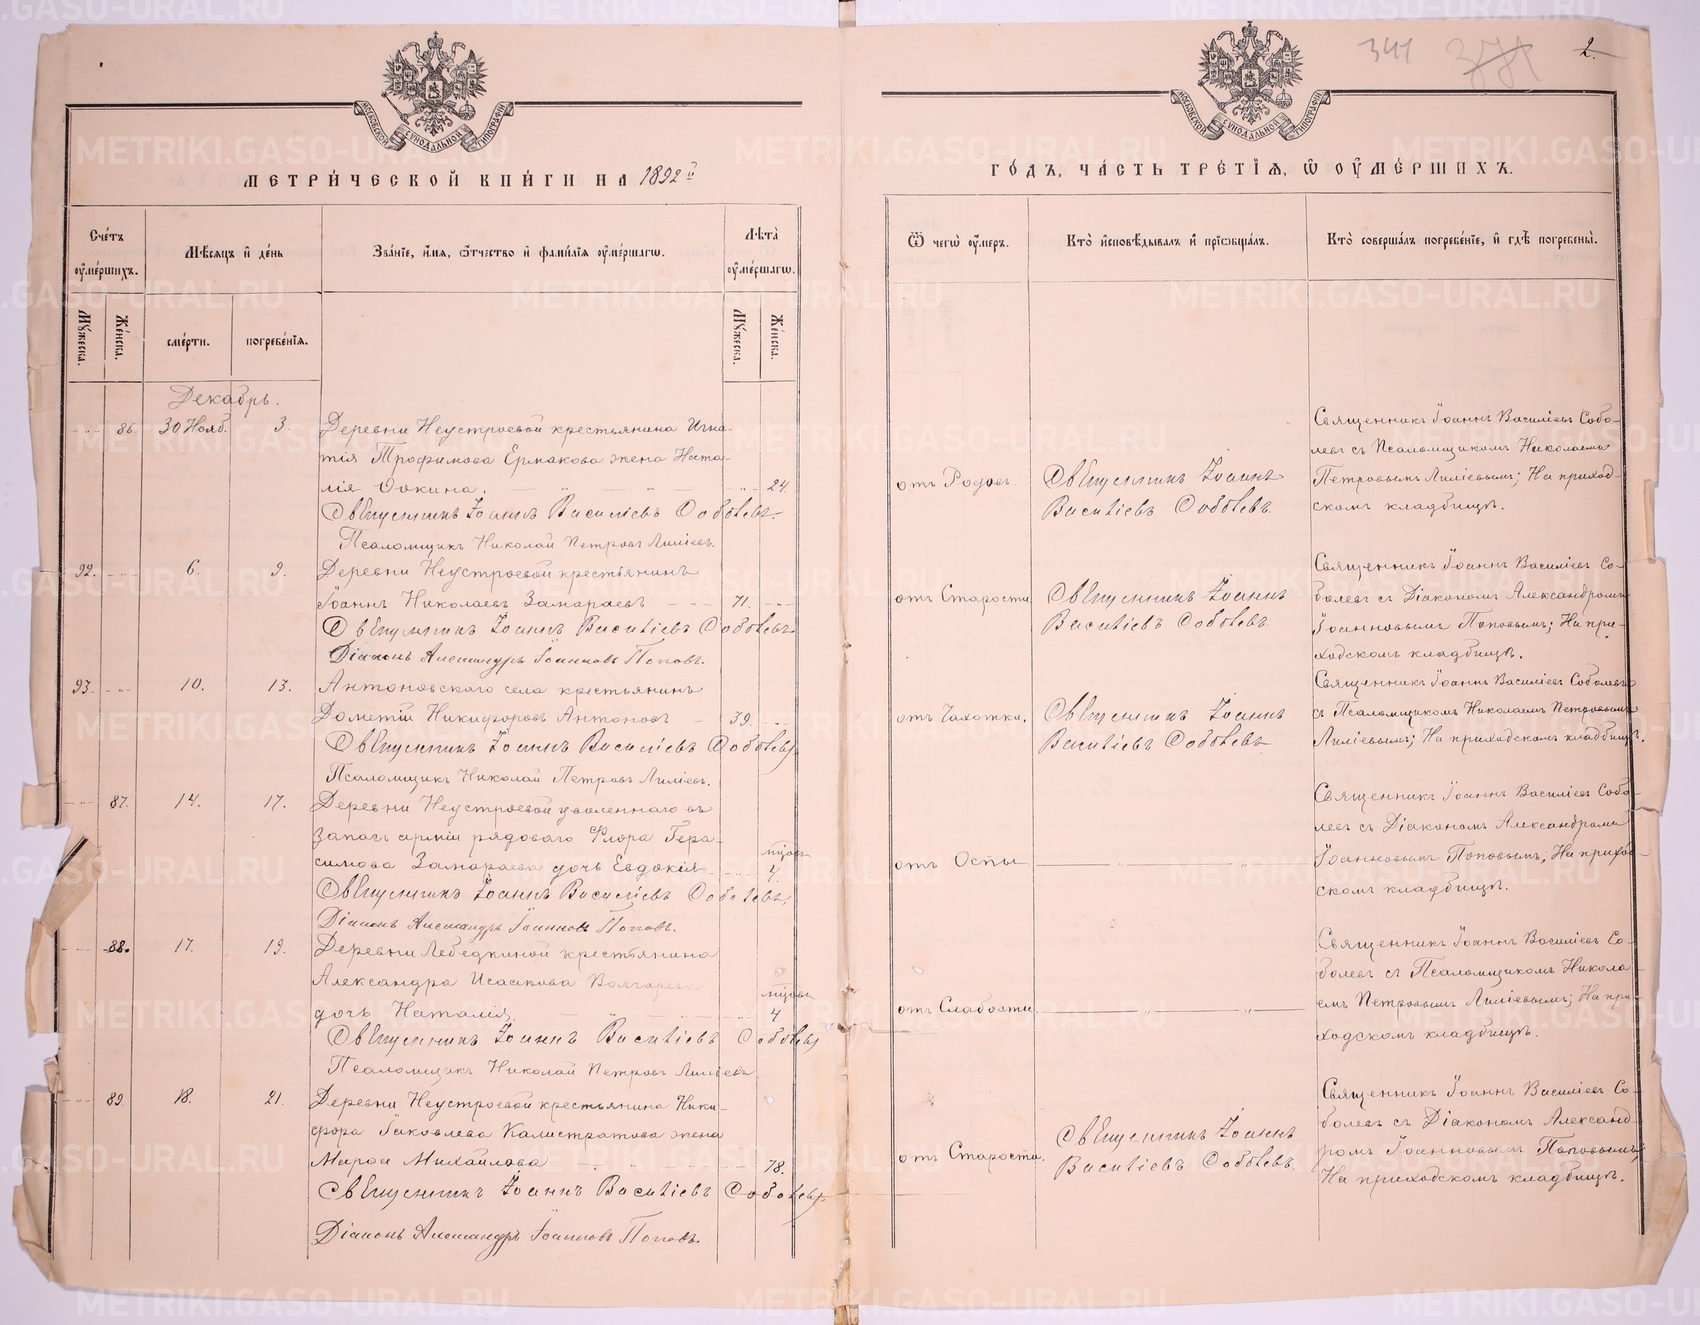 341
2.
МОСКОВСКОЙ СѴНОДАЛЬНОЙ ТИПОГРАФІИ
МОСКОВСКОЙ СѴНОДАЛЬНОЙ ТИПОГРАФІИ
МЕТРИ́ЧЕСКОЙ КНИ́ГИ НА 1892й
ГО́ДЪ, ЧА́СТЬ ТРЕ́ТІЯ, Ѡ ОУ҆МЕ́РШИХЪ.
Сче́тъ оу҆ме́ршихъ.
Мѣ́сяцъ и҆ де́нь
Зва́ніе, и҆́мя, ѻ҆́тчество и҆ фами́лія оу҆ме́ршагѡ.
Лѣта̀ оу҆ме́ршагѡ.
Ѿ чегѡ̀ оу҆́меръ.
Кто̀ и҆сповѣ́дывалъ и҆ прїѡбща́лъ.
Кто̀ соверша́лъ погребе́ніе, и҆ гдѣ̀ погребены̀.
Му́жеска.
Же́нска.
сме́рти.
погребе́нія.
Му́жеска.
Же́нска.
Декабрь.
86. 30 Нояб. 3. Деревни Неустроевой крестьянина Игна-
тія Трофимова Ермакова жена Ната-
лія Фокина. 24.
Священникъ Іоаннъ Василіевъ Соболевъ.
Псаломщикъ Николай Петровъ Лиліевъ.
отъ Родовъ
Священникъ Іоаннъ
Василіевъ Соболевъ.
Священникъ Іоаннъ Василіевъ Собо-
левъ съ Псаломщикомъ Николаемъ
Петровымъ Лиліевымъ; На приход-
скомъ кладбищѣ.
92. 6. 9. Деревни Неустроевой крестьянинъ
Іоаннъ Николаевъ Замараевъ 71.
Священникъ Іоаннъ Василіевъ Соболевъ.
Діаконъ Александръ Іоанновъ Поповъ.
отъ Старости
Священникъ Іоаннъ
Василіевъ Соболевъ.
Священникъ Іоаннъ Василіевъ Со-
болевъ съ Діакономъ Александромъ
Іоанновымъ Поповымъ; На при-
ходскомъ кладбищѣ.
93. 10. 13. Антоновскаго села крестьянинъ
Дометій Никифоровъ Антоновъ 39.
Священникъ Іоаннъ Василіевъ Соболевъ
Псаломщикъ Николай Петровъ Лиліевъ.
отъ Чахотки.
Священникъ Іоаннъ
Василіевъ Соболевъ
Священникъ Іоаннъ Василіевъ Соболевъ
съ Псаломщикомъ Николаемъ Петровымъ
Лиліевымъ; На приходскомъ кладбищѣ.
87. 14. 17. Деревни Неустроевой уволеннаго въ
запасъ арміи рядоваго Флора Гера-
симова Замараева дочь Евдокія мѣсяц. 4.
Священникъ Іоаннъ Василіевъ Соболевъ.
Діаконъ Александръ Іоанновъ Поповъ.
отъ Оспы
Священникъ Іоаннъ Василіевъ Собо-
левъ съ Діакономъ Александромъ
Іоанновымъ Поповымъ; На приход-
скомъ кладбищѣ.
88. 17. 19. Деревни Лебедкиной крестьянина
Александра Исаакова
дочь Наталія. 4
Священникъ Іоаннъ Василіевъ Соболевъ
Псаломщикъ Николай Петровъ Лиліевъ
отъ Слабости.
Священникъ Іоаннъ Василіевъ Со-
болевъ съ Псаломщикомъ Никола-
емъ Петровымъ Лиліевымъ; На при-
ходскомъ кладбищѣ.
89. 18. 21. Деревни Неустроевой крестьянина Ники-
фора Іаковлева Калистратова жена
Мароа Михайлова 78.
Священникъ Іоаннъ Василіевъ Соболевъ
Діаконъ Александръ Іоанновъ Поповъ.
отъ Старости.
Священникъ Іоаннъ
Василіевъ Соболевъ.
Священникъ Іоаннъ Василіевъ Со-
болевъ съ Діакономъ Александ-
ромъ Іоанновымъ Поповымъ;
На приходскомъ кладбищѣ.
METRIKI.GASO-URAL.RU